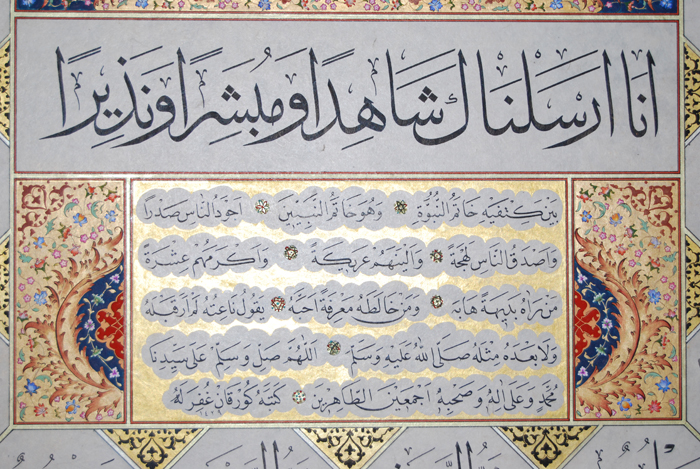 انا ارسلناك شاهدا ومبشرا ونذيرا
بين كتفيه خاتم النبوة وهو خاتم النبيين اجود الناس صدرا
واصدق الناس لهجة والينهم عريكة واكرمهم عشرة
من رآه بديهة هابه ومن خالطه معرفة احبه يقول ناعته لم ار قبله
ولا بعده مثله صلى الله عليه وسلم اللهم صل وسلم على سيدنا
محمد وعلى اله وصحبه اجمعين الطاهرين كتبه كورقان غفر له